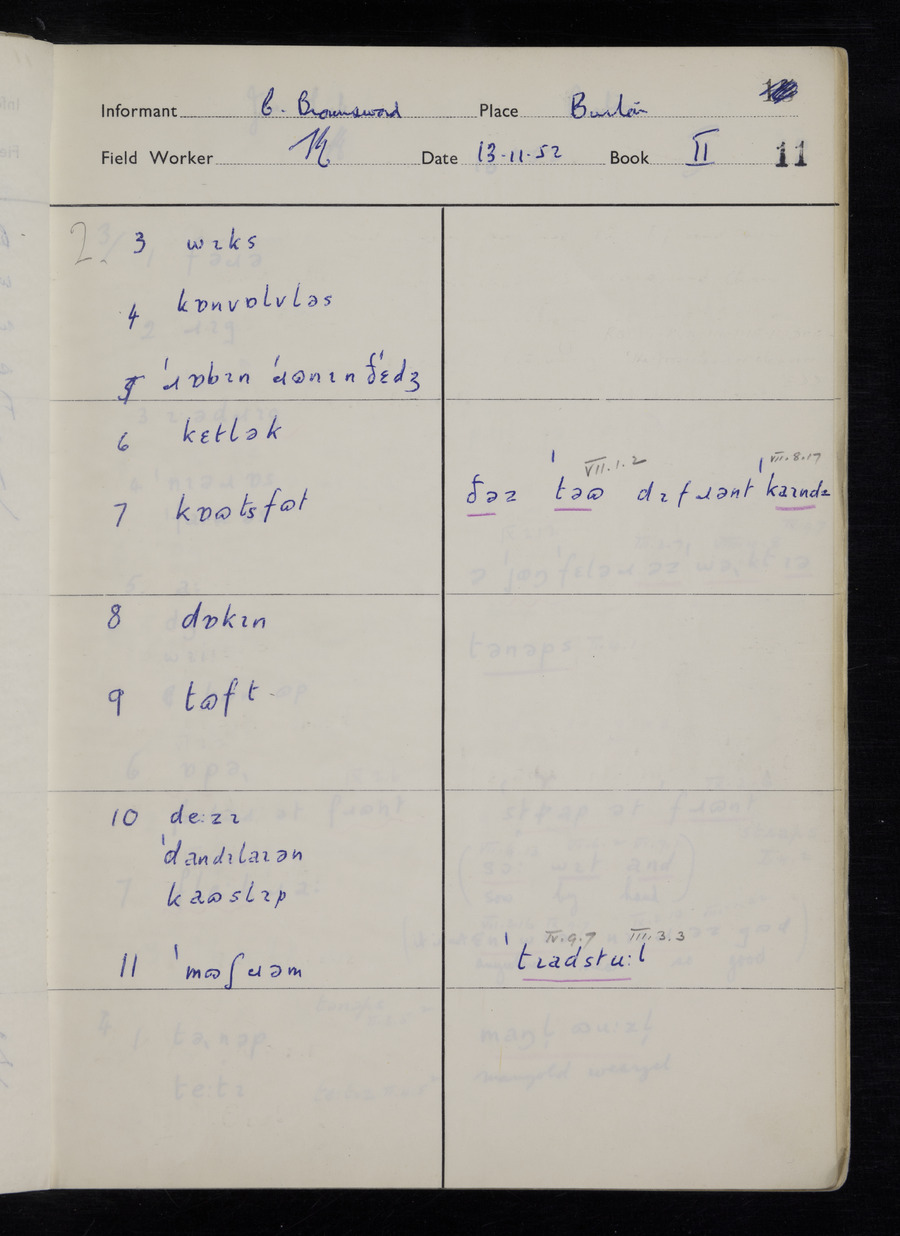 Informant C. Brownsword Place Burton
Field Worker Date 13·11·52 Book II 11
2. 3 wɪks
4 kɒnvɒlvləs
5 ˈɹɒbɪn ˈɹɷnɪn ðˈɛdʒ
6 kɛtlək
7 kɒɷtsfɷt
ðəɪ ˈtəɷ VII.1.2 dɪfɹənt ˈkaɪndz VII.8.17
8 dɒkɪn
9 tɷft
10 de:zɪ
ˈdandɪlaɪən
kaɷslɪp
11 ˈmɷʃɹəm
ˈtɪadstu:l IV.9.7 III.3.3